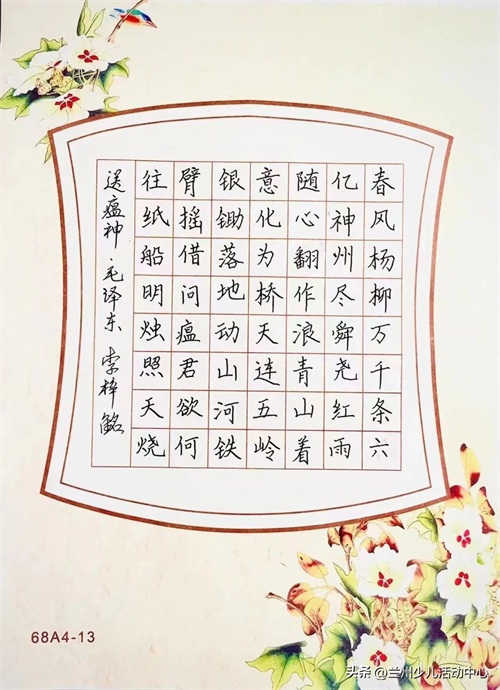 春风杨柳万千条六
亿神州尽舜尧红雨
随心翻作浪青山着
意化为桥天连五岭
银锄落地动山河铁
臂摇借问瘟君欲何
往纸船明烛照天烧
送瘟神·毛泽东 李梓铭
68A4-13
头条 @兰州少儿活动中心